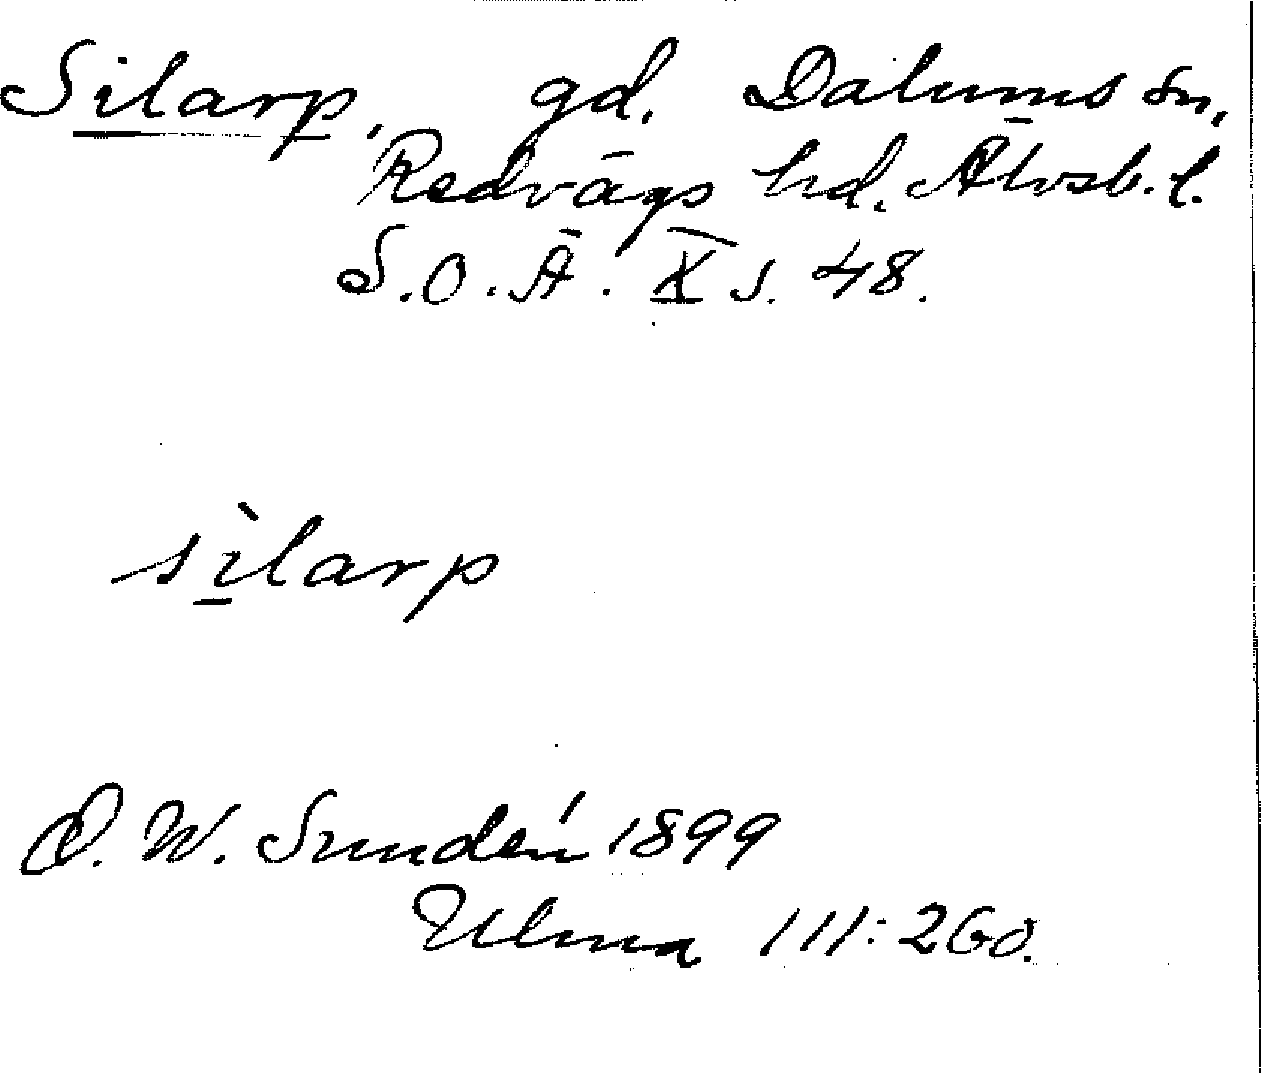 Silarp, gd. Dalums sn,
Redvägs hd. Älvsb. l.
S.O.Ä. X s. 48.
sìlarp
D. W. Sundén 1899
Ulma 111:260.